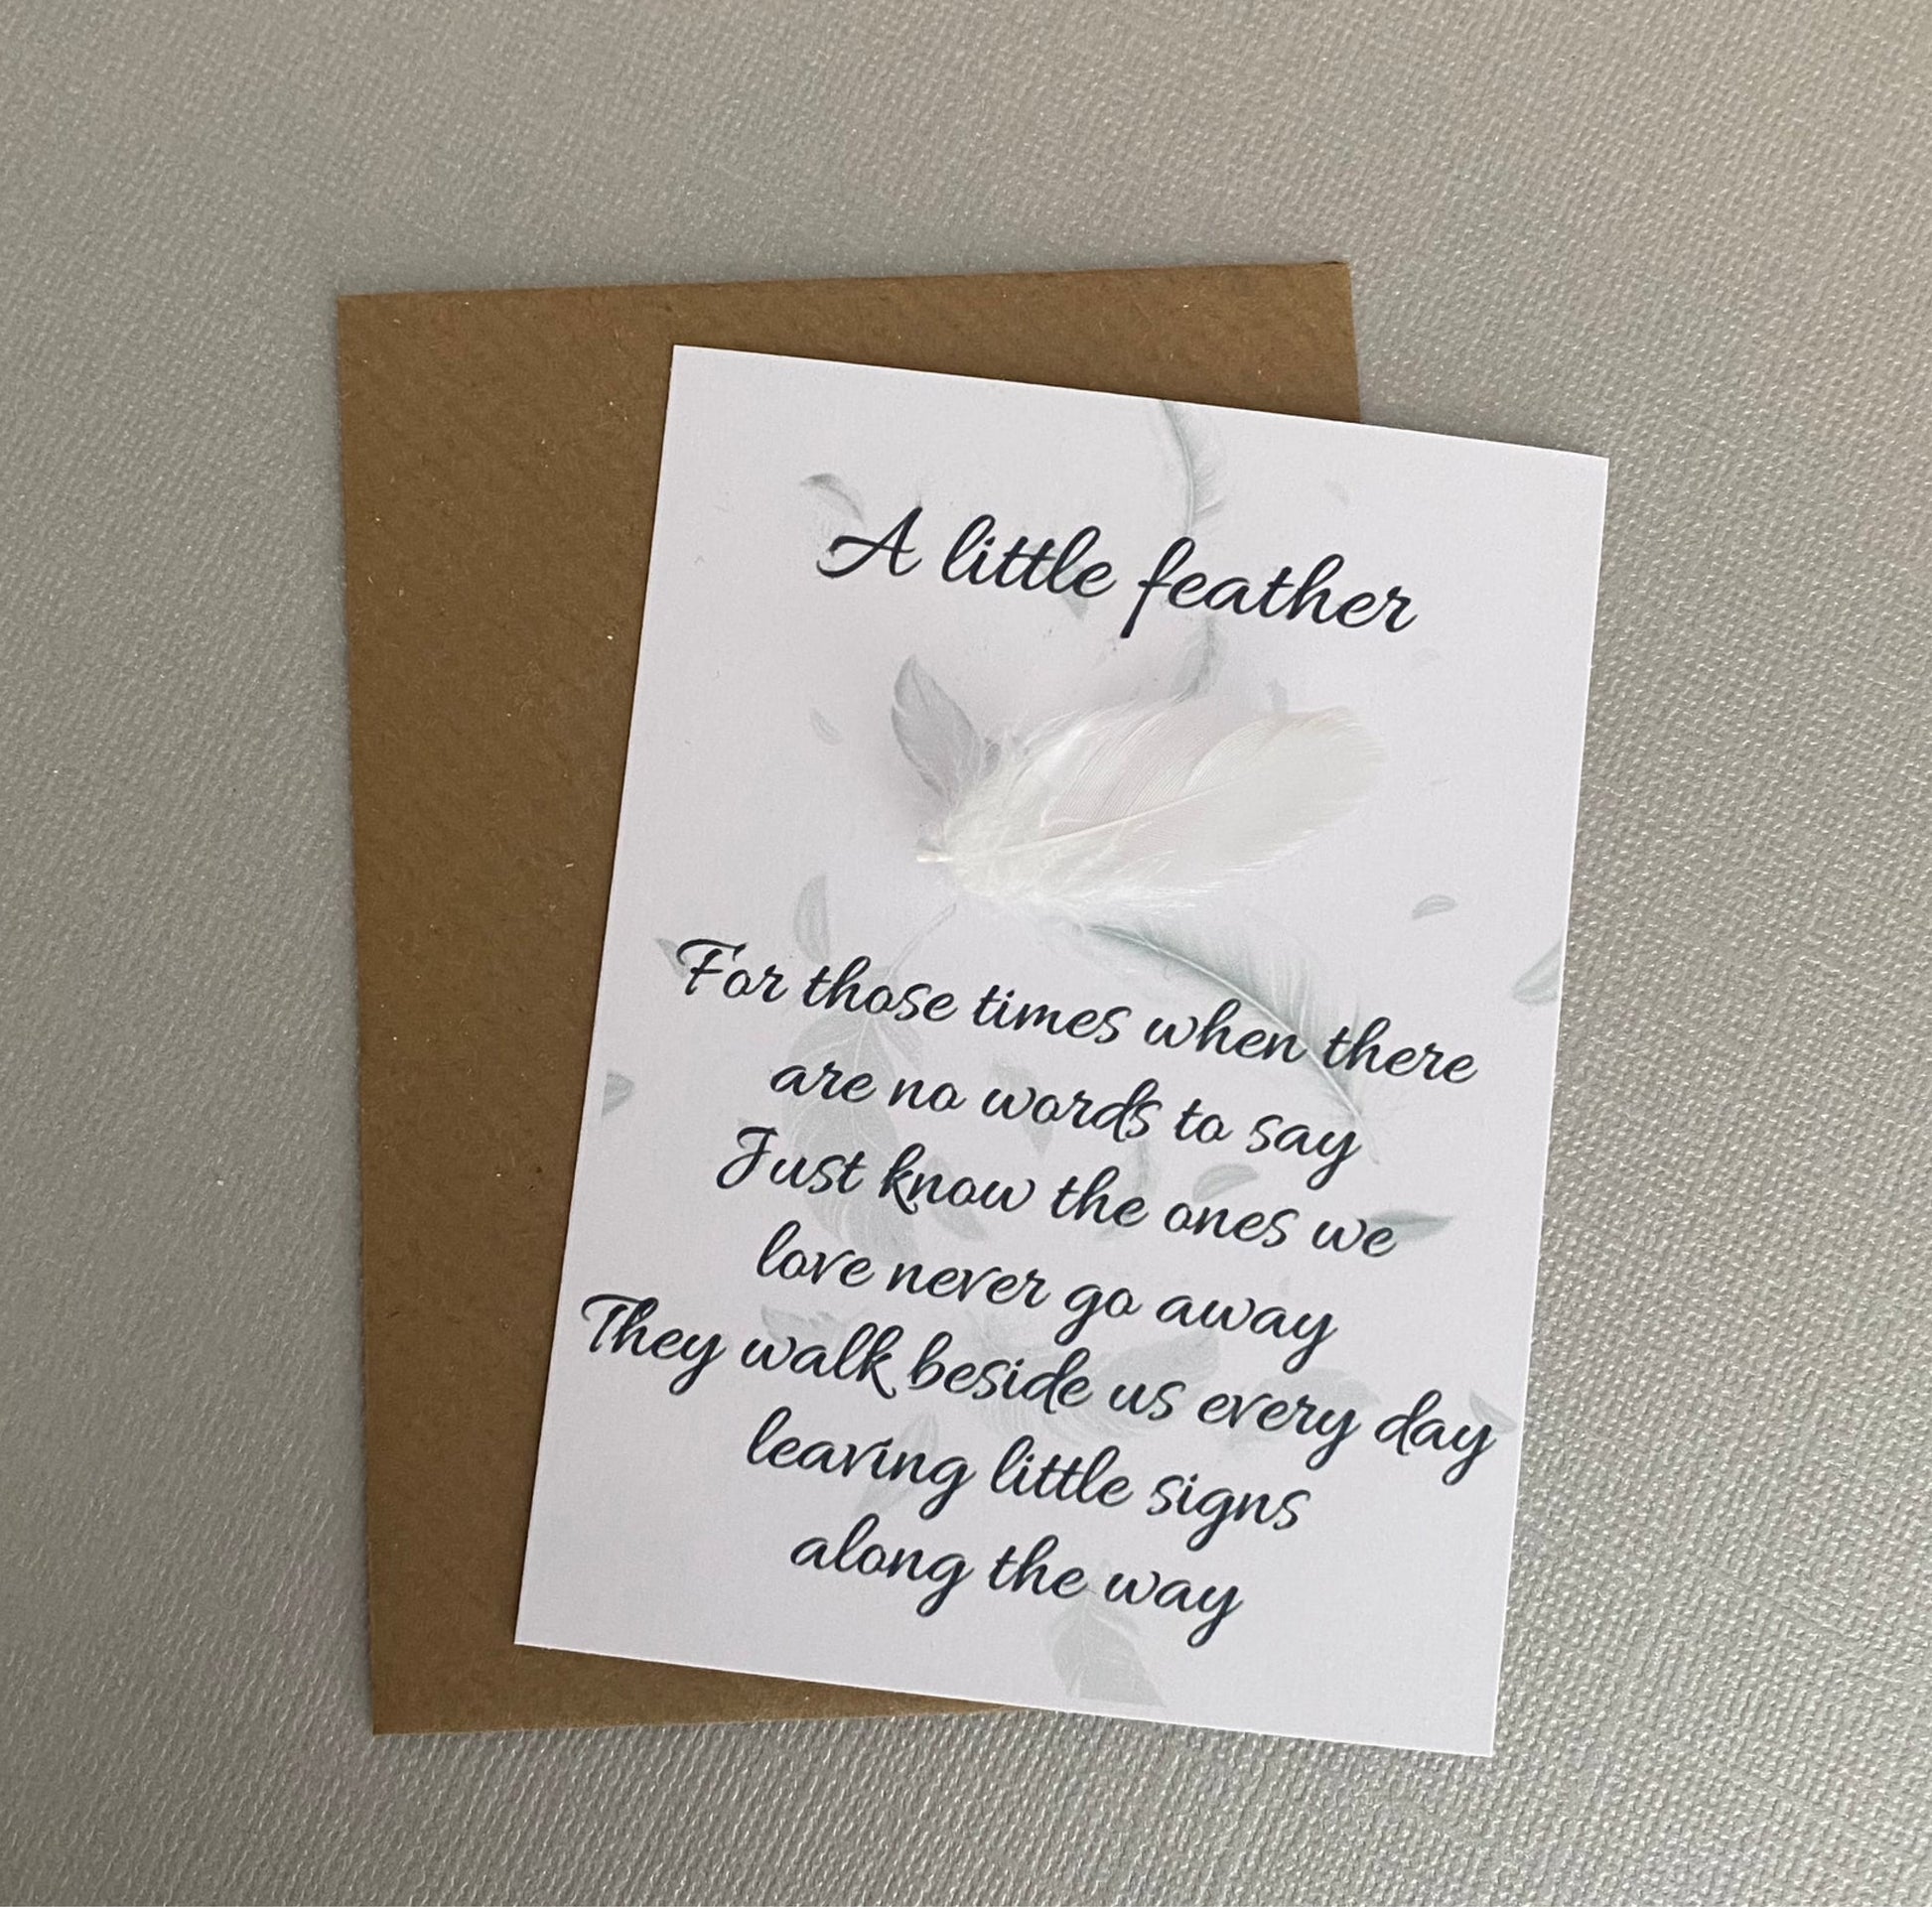 A little feather
For those times when there
are no words to say
Just know the ones we
love never go away
They walk beside us every day
leaving little signs
along the way